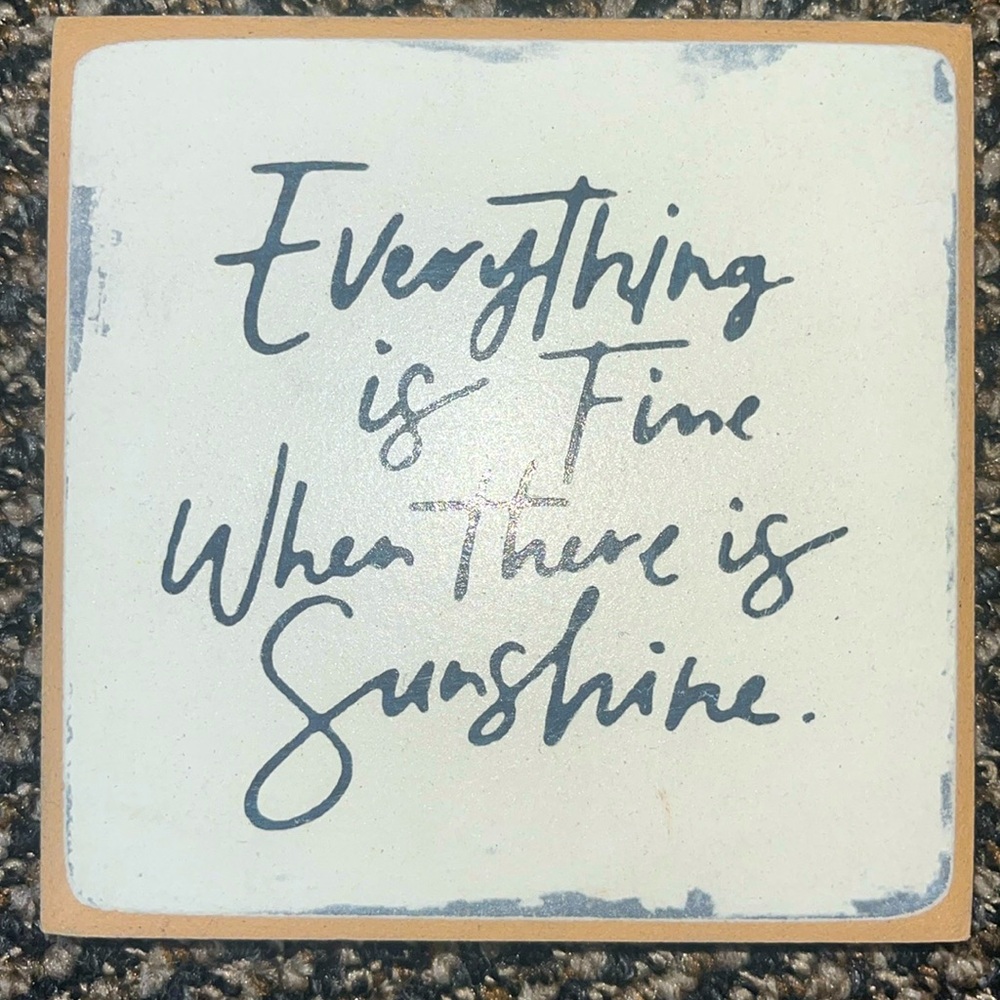 Everything
is Fine
When There is
Sunshine.